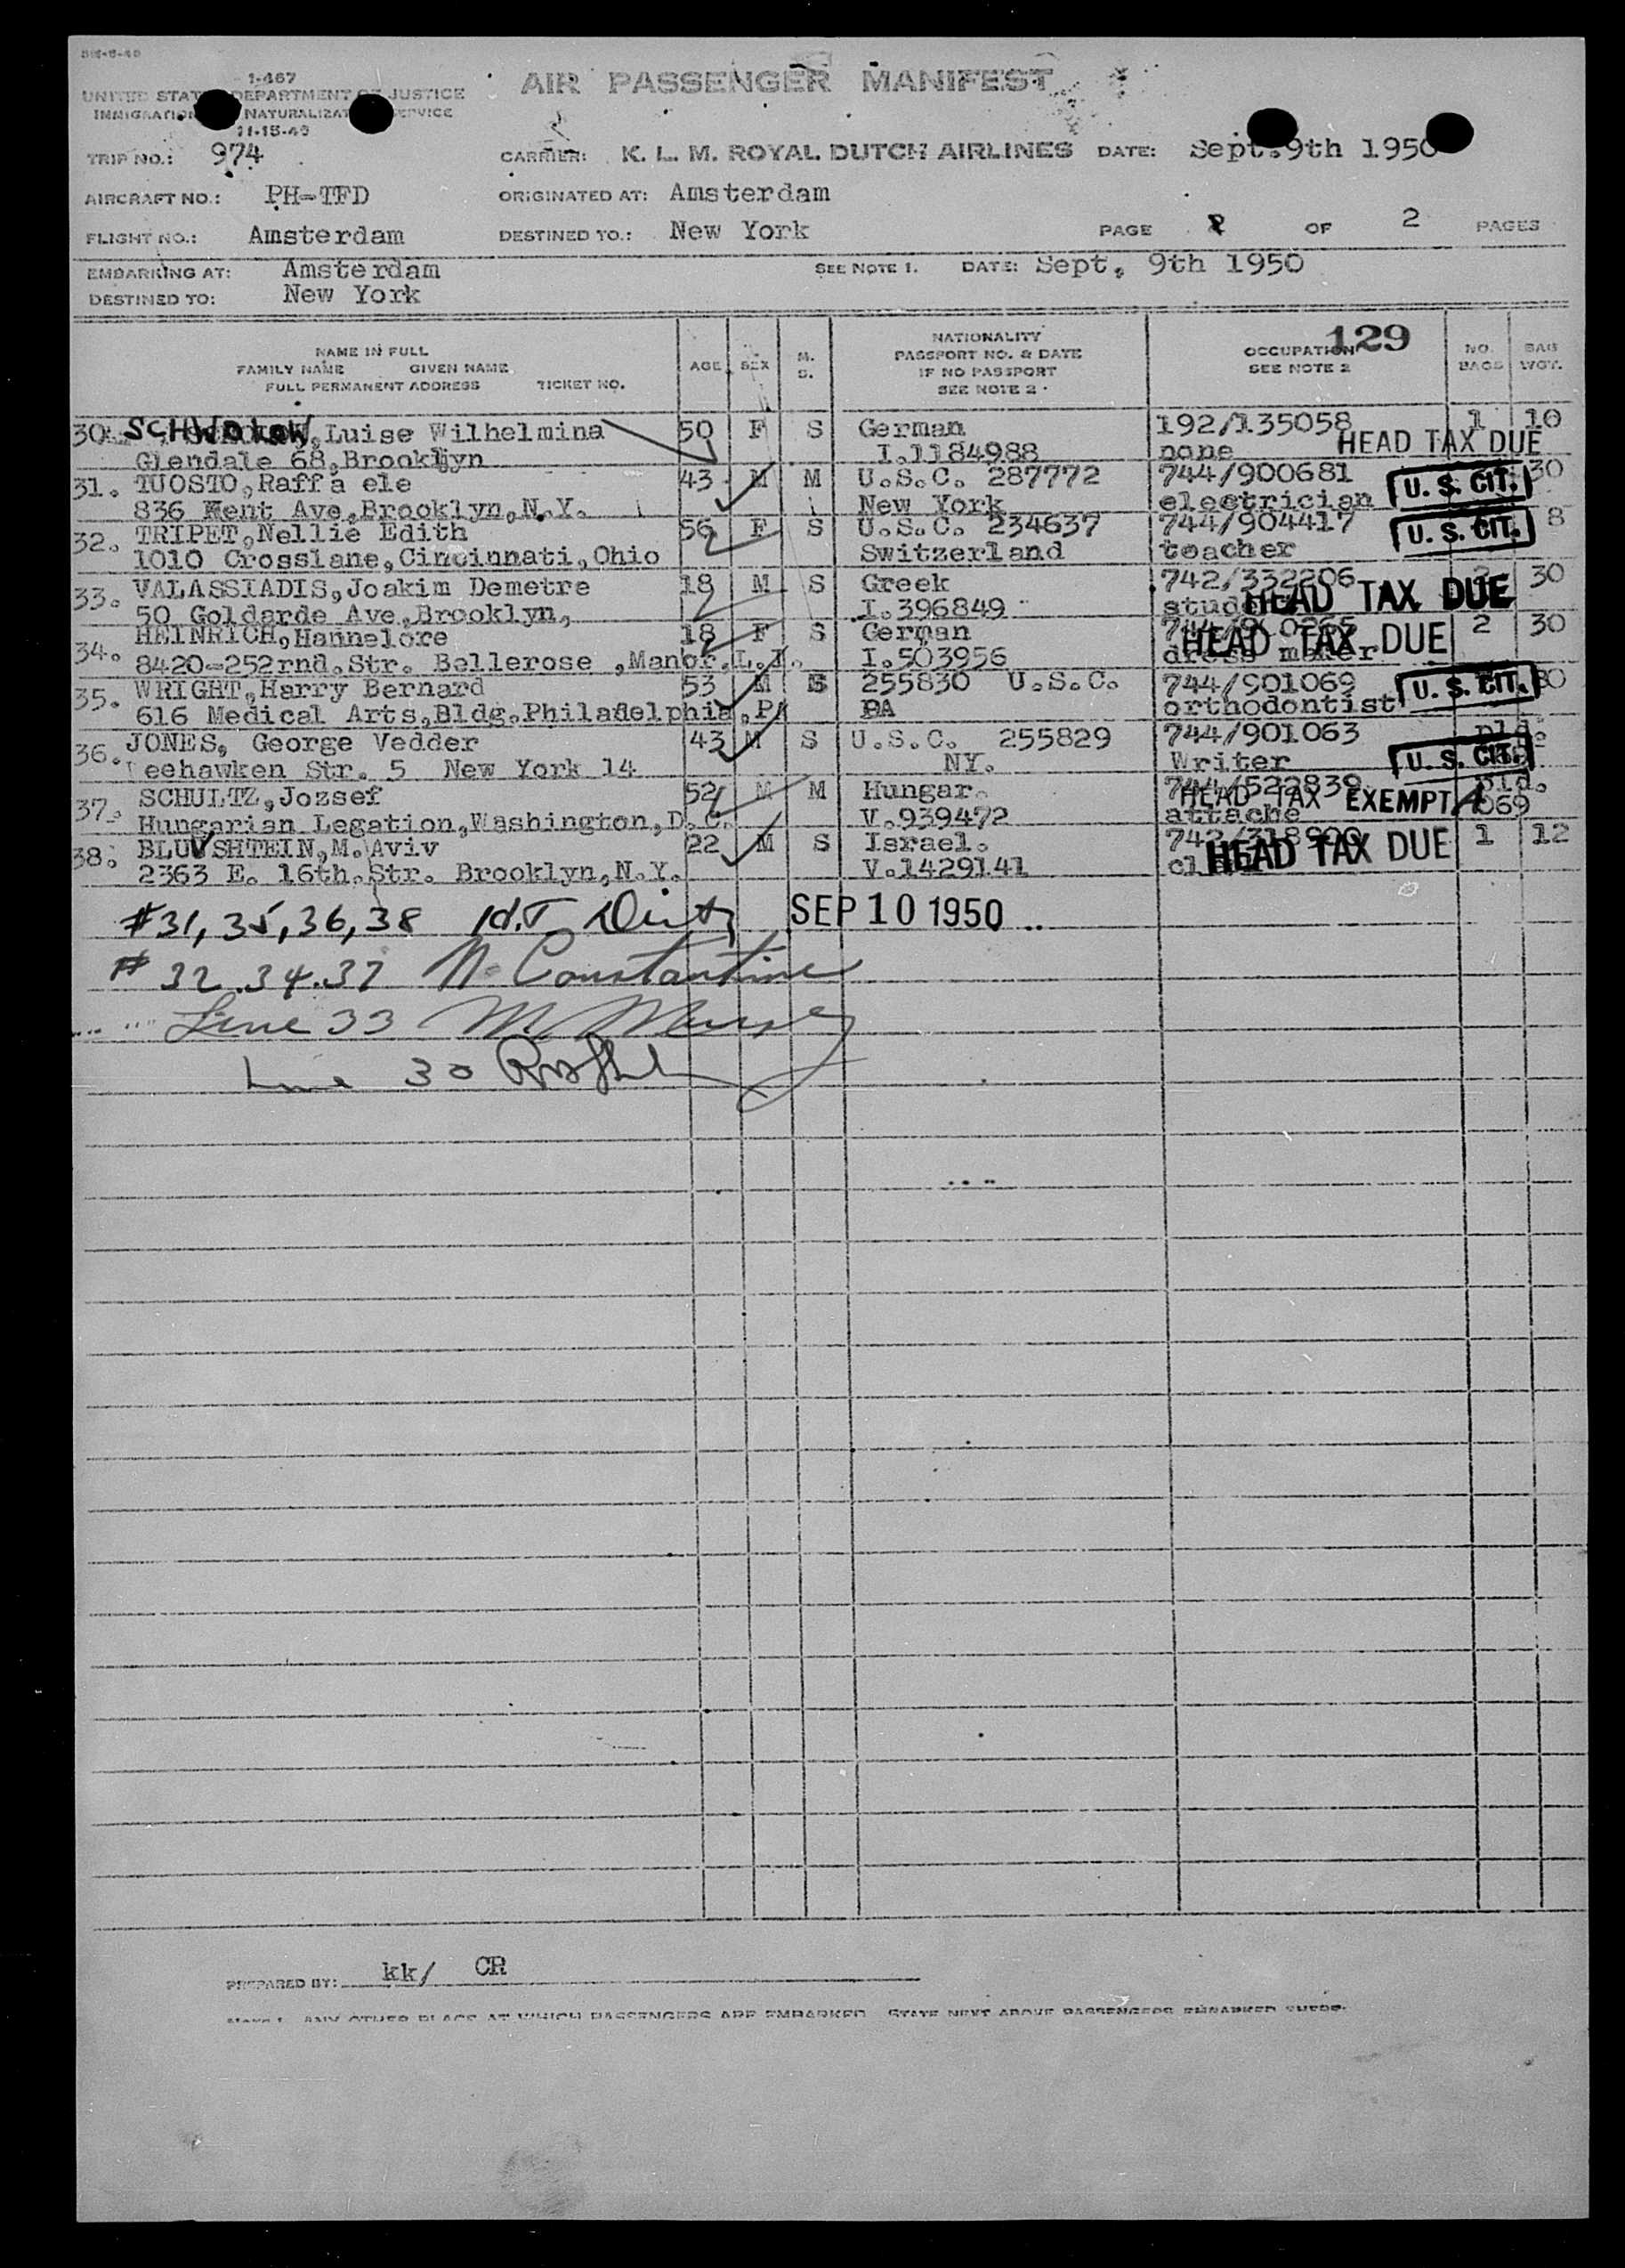 1-467
UNITED STAT DEPARTMENT OF JUSTICE
IMMIGRATION NATURALIZAT SERVICE
11-15-49
AIR PASSENGER MANIFEST
TRIP NO.: 974 CARRIER: K. L. M. ROYAL DUTCH AIRLINES DATE: Sept.9th 1950
AIRCRAFT NO.: PH-TFD ORIGINATED AT: Amsterdam
FLIGHT NO.: Amsterdam DESTINED TO.: New York PAGE 2 OF 2 PAGES
EMBARKING AT: Amsterdam SEE NOTE 1. DATE: Sept. 9th 1950
DESTINED TO: New York
129
NAME IN FULL
FAMILY NAME GIVEN NAME
FULL PERMANENT ADDRESS TICKET NO.
AGE SEX M. S.
NATIONALITY
PASSPORT NO. & DATE
IF NO PASSPORT
SEE NOTE 2
OCCUPATION
SEE NOTE 2
NO. BAGS
BAG WGT.
30. ,Luise Wilhelmina 50 F S German 192/135058 1 10
Glendale 68,Brooklyn I.1184988 none HEAD TAX DUE
31. TUOSTO,Raffa ele 43 M M U.S.C. 287772 744/900681 30
836 Kent Ave,Brooklyn,N.Y. New York electrician U. S. CIT.
32. TRIPET,Nellie Edith 56 F S U.S.C. 234637 744/904417 8
1010 Crosslane,Cincinnati,Ohio Switzerland teacher U. S. CIT.
33. VALASSIADIS,Joakim Demetre 18 M S Greek 742/332206 30
50 Goldarde Ave,Brooklyn, I.396849 HEAD TAX DUE
34. HEINRICH,Hannelore 18 F S German 2 30
8420-252rnd.Str. Bellerose ,Manor,L.I. I.503956 dress maker HEAD TAX DUE
35. WRIGHT,Harry Bernard 53 M S 255830 U.S.C. 744/901069
616 Medical Arts,Bldg.Philadelphia,PA PA orthodontist U. S. CIT.
36. JONES, George Vedder 43 M S U.S.C. 255829 744/901063
eehawken Str. 5 New York 14 NY. Writer U. S. CIT.
37. SCHULTZ,Jozsef 52 M M Hungar. 744/522839 pld.
Hungarian Legation,Washington,D.C. V.939472 attache HEAD TAX EXEMPT 069
38. BLUVSHTEIN,M.Aviv 22 M S Israel. 742/318900 1 12
2363 E. 16th.Str. Brooklyn,N.Y. V.1429141 HEAD TAX DUE
#31, 35, 36, 38 SEP 10 1950
# 32.34.37 N Constantine
Line 33 M
Line 30
PREPARED BY: kk/ CR
ANY OTHER PLACE AT WHICH PASSENGERS ARE EMBARKED STATE NEXT ABOVE PASSENGERS EMBARKED THERE.